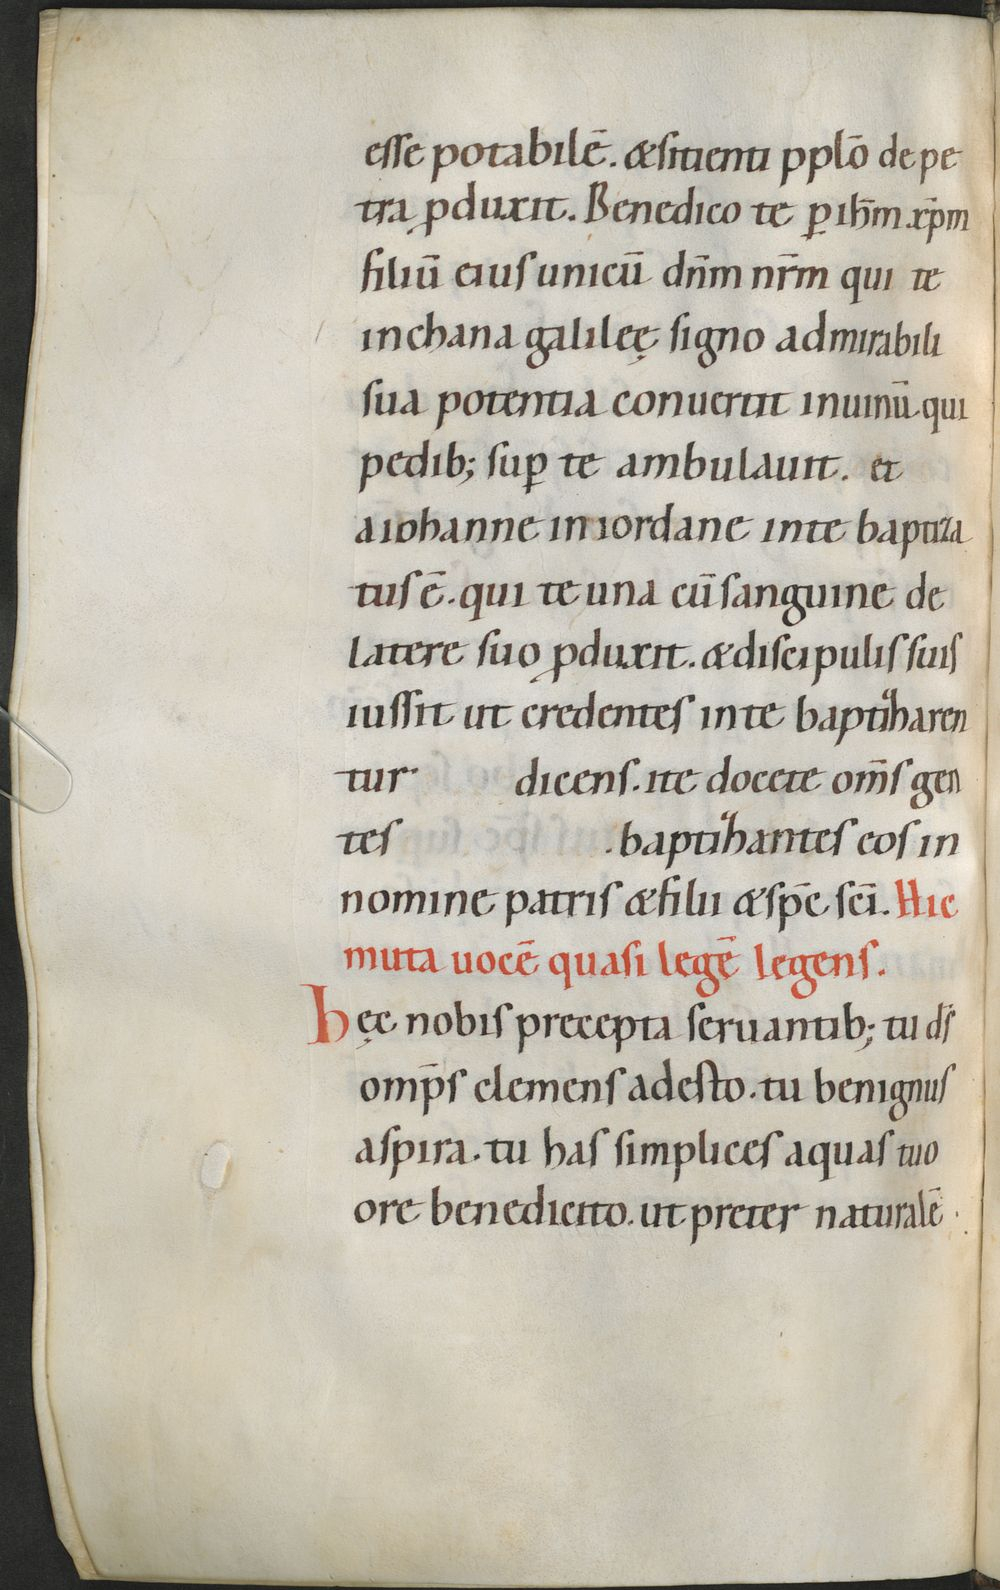 esse potabilē. &sitienti pplō de pe
tra ꝓduxit. Benedico te ꝑ ih̄m xp̄m
filiū eius unicū dn̄m nr̄m qui te
inchana galileę signo admirabili
sua potentia conuertit inuinū. qui
pedib; suꝑ te ambulauit. et
aiohanne iniordane inte baptiza
tus ē. qui te una cū sanguine de
latere suo ꝓduxit. &discipulis suis
iussit ut credentes inte baptizaren
tur dicens. ite docete om̄s gen
tes . baptizantes eos in
nomine patris &filii &sp̄c sc̄i. Hic
muta uocē quasi legē legens.
hęc nobis precepta seruantib; tu ds̄
omp̄s clemens adesto. tu benignus
aspira. tu has simplices aquas tuo
ore benedicito. ut preter naturalē.